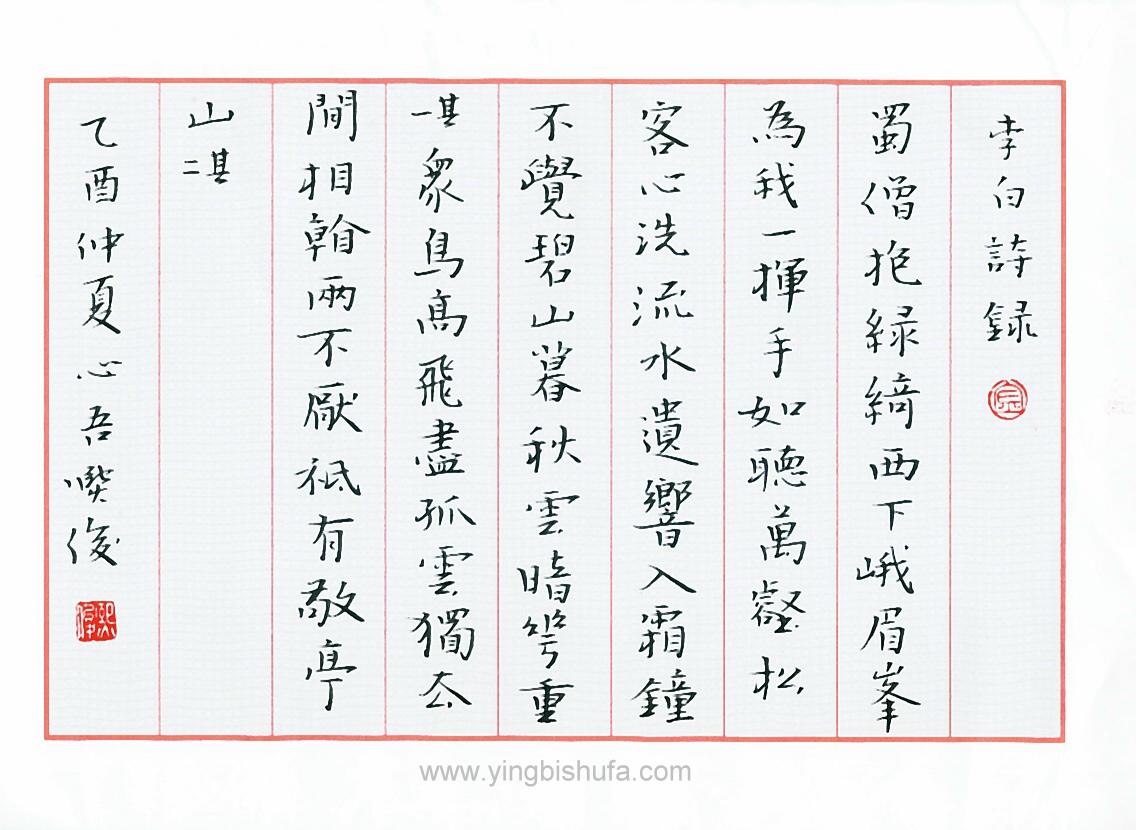 李白詩録
蜀僧抱緑綺西下峨眉峯
為我一揮手如聽萬壑松
客心洗流水遺響入霜鐘
不覺碧山暮秋雲暗幾重
其一衆鳥高飛盡孤雲獨去
閒相看兩不厭祗有敬亭
山其二
乙酉仲夏心吾俊
www.yingbishufa.com